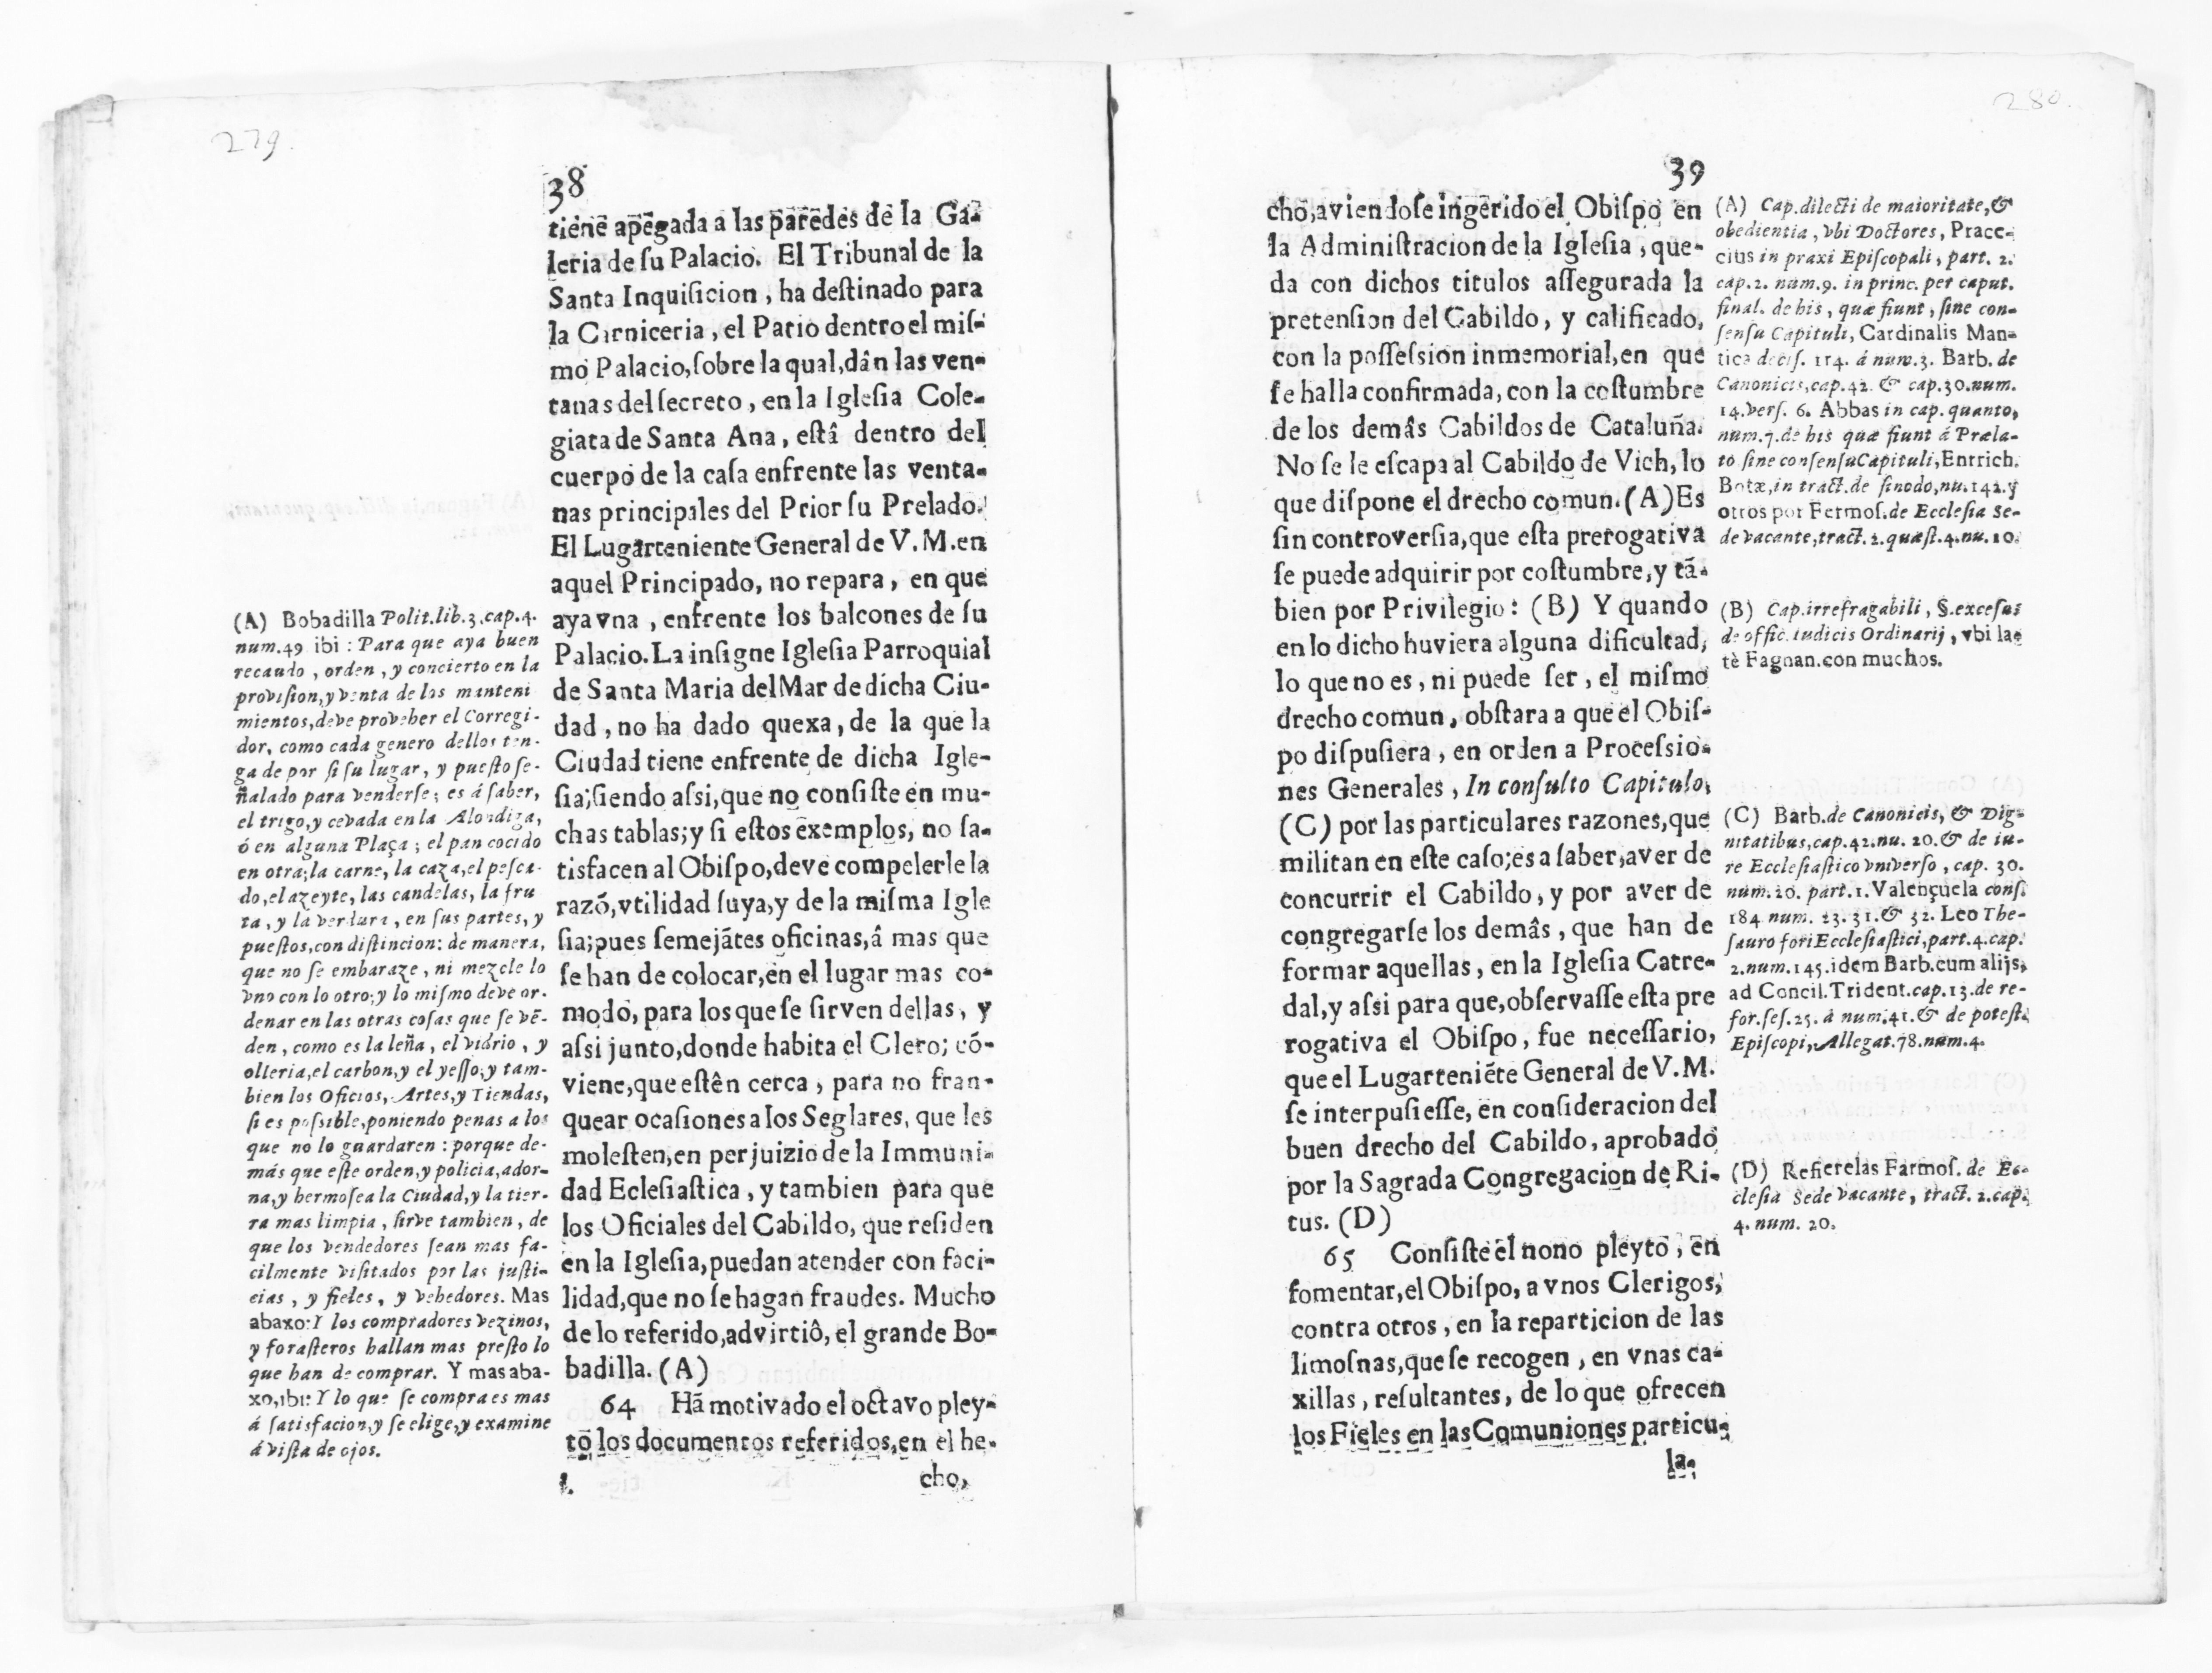 279.
38
tienē apēgada a las parēdes de la Ga-
leria de ſu Palacio. El Tribunal de la
Santa Inquiſicion, ha deſtinado para
la Carniceria, el Patio dentro el miſ-
mo Palacio, ſobre la qual, dân las ven-
tanas del ſecreto, en la Igleſia Cole-
giata de Santa Ana, eſtâ dentro del
cuerpo de la caſa enfrente las venta-
nas principales del Prior ſu Prelado.
El Lugarteniente General de V. M. en
aquel Principado, no repara, en que
aya vna, enfrente los balcones de ſu
Palacio. La inſigne Igleſia Parroquial
de Santa Maria del Mar de dicha Ciu-
dad, no ha dado quexa, de la que la
Ciudad tiene enfrente de dicha Igle-
ſia; ſiendo aſsi, que no conſiſte en mu-
chas tablas; y ſi eſtos exemplos, no ſa-
tisfacen al Obiſpo, deve compelerle la
razõ, vtilidad ſuya, y de la miſma Igle
ſia; pues ſemejãtes oficinas, â mas que
ſe han de colocar, en el lugar mas co-
modo, para los que ſe ſirven dellas, y
aſsi junto, donde habita el Clero; cõ-
viene, que eſtên cerca, para no fran-
quear ocaſiones a los Seglares, que les
moleſten, en perjuizio de la Immuni-
dad Ecleſiaſtica, y tambien para que
los Oficiales del Cabildo, que reſiden
en la Igleſia, puedan atender con faci-
lidad, que no ſe hagan fraudes. Mucho
de lo referido, advirtiô, el grande Bo-
badilla. (A)
64 Hã motivado el octavo pley-
to los documentos referidos, en el he-
cho,
(A) Bobadilla Polit. lib. 3. cap. 4.
num. 49 ibi: Para que aya buen
recaudo, orden, y concierto en la
proviſion, y venta de los manteni
mientos, deve proveher el Corregi-
dor, como cada genero dellos ten-
ga de por ſi ſu lugar, y pueſto ſe-
ñalado para venderſe; es á ſaber,
el trigo, y cevada en la Alondiga,
ó en alguna Plaça; el pan cocido
en otra; la carne, la caza, el peſca-
do, el azeyte, las candelas, la fru
ta, y la verdura, en ſus partes, y
pueſtos, con diſtincion: de manera,
que no ſe embaraze, ni mezcle lo
vno con lo otro; y lo miſmo deve or-
denar en las otras coſas que ſe vē-
den, como es la leña, el vidrio, y
olleria, el carbon, y el yeſſo, y tam-
bien los Oficios, Artes, y Tiendas,
ſi es poſsible, poniendo penas a los
que no lo guardaren: porque de-
más que eſte orden, y policia, ador-
na, y hermoſea la Ciudad, y la tier-
ra mas limpia, ſirve tambien, de
que los vendedores ſean mas fa-
cilmente viſitados por las juſti-
cias, y fieles, y vehedores. Mas
abaxo: Y los compradores vezinos,
y foraſteros hallan mas preſto lo
que han de comprar. Y mas aba-
xo, ibi: Y lo que ſe compra es mas
á ſatisfacion, y ſe elige, y examine
á viſta de ojos.
280.
39
cho, aviendoſe ingerido el Obiſpo en
la Adminiſtracion de la Igleſia, que-
da con dichos titulos aſſegurada la
pretenſion del Cabildo, y calificado,
con la poſſeſsion inmemorial, en que
ſe halla confirmada, con la coſtumbre
de los demâs Cabildos de Cataluña.
No ſe le eſcapa al Cabildo de Vich, lo
que diſpone el drecho comun. (A) Es
ſin controverſia, que eſta prerogativa
ſe puede adquirir por coſtumbre, y tã-
bien por Privilegio: (B) Y quando
en lo dicho huviera alguna dificultad,
lo que no es, ni puede ſer, el miſmo
drecho comun, obſtara a que el Obiſ-
po diſpuſiera, en orden a Proceſsio-
nes Generales, In conſulto Capitulo,
(C) por las particulares razones, que
militan en eſte caſo; es a ſaber, aver de
concurrir el Cabildo, y por aver de
congregarſe los demâs, que han de
formar aquellas, en la Igleſia Catre-
dal, y aſsi para que, obſervaſſe eſta pre
rogativa el Obiſpo, fue neceſſario,
que el Lugarteniẽte General de V. M.
ſe interpuſieſſe, en conſideracion del
buen drecho del Cabildo, aprobado
por la Sagrada Congregacion de Ri-
tus. (D)
65 Conſiſte el nono pleyto, en
fomentar, el Obiſpo, a vnos Clerigos,
contra otros, en la reparticion de las
limoſnas, que ſe recogen, en vnas ca-
xillas, reſultantes, de lo que ofrecen
los Fieles en las Comuniones particu-
la-
(A) Cap. dilecti de maioritate, &
obedientia, vbi Doctores, Pracc-
cius in praxi Epiſcopali, part. 2.
cap. 2. num. 9. in princ. per caput.
final. de his, quæ fiunt, ſine con-
ſenſu Capituli, Cardinalis Man-
tica deciſ. 114. á num. 3. Barb. de
Canonicis, cap. 42. & cap. 30. num.
14. verſ. 6. Abbas in cap. quanto,
num. 7. de his quæ fiunt á Præla-
to ſine conſenſu Capituli, Enrrich.
Botæ, in tract. de ſinodo, nu. 142. y
otros por Fermoſ. de Eccleſia Se-
de vacante, tract. 2. quæſt. 4. nu. 10.
(B) Cap. irrefragabili, §. exceſus
de offic. Iudicis Ordinarij, vbi la-
tè Fagnan. con muchos.
(C) Barb. de Canonicis, & Dig-
nitatibus, cap. 42. nu. 20. & de iu-
re Eccleſiaſtico vniverſo, cap. 30.
num. 20. part. 1. Valençuela conſ.
184 num. 23. 31. & 32. Leo The-
ſauro fori Eccleſiaſtici, part. 4. cap.
2. num. 145. idem Barb. cum alijs,
ad Concil. Trident. cap. 13. de re-
for. ſeſ. 25. á num. 41. & de poteſt.
Epiſcopi, Allegat. 78. num. 4.
(D) Refierelas Farmoſ. de Ec-
cleſia Sede vacante, tract. 2. cap.
4. num. 20.